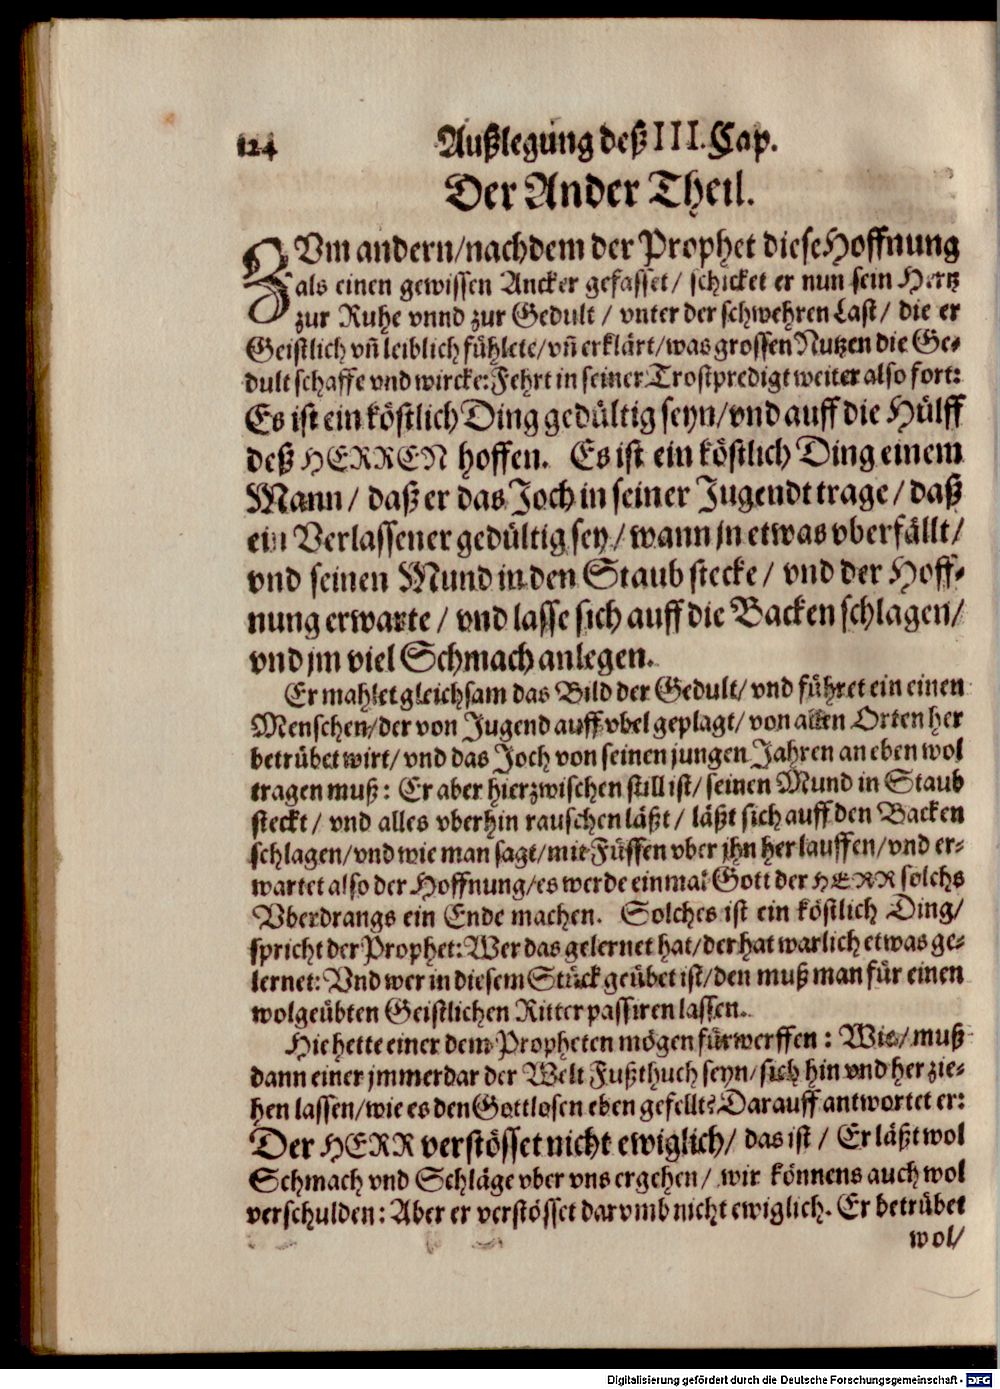 124 Außlegung deß III. Cap.
Der Ander Theil.
ZVm andern/nachdem der Prophet diese Hoffnung
als einen gewissen Ancker gefasset/ schicket er nun sein Hertz
zur Ruhe vnnd zur Gedult / vnter der schwehren Last/ die er
Geistlich vñ leiblich fühlete/vñ erklärt/was grossen Nutzen die Ge-
dult schaffe vnd wircke: Fehrt in seiner Trostpredigt weiter also fort:
Es ist ein köstlich Ding gedültig seyn/vnd auff die Hülff
deß HERREN hoffen. Es ist ein köstlich Ding einem
Mann/ daß er das Joch in seiner Jugendt trage/ daß
ein Verlassener gedültig sey/ wann jn etwas vberfällt/
vnd seinen Mund in den Staub stecke/ vnd der Hoff-
nung erwarte/ vnd lasse sich auff die Backen schlagen/
vnd jm viel Schmach anlegen.
Er mahlet gleichsam das Bild der Gedult/ vnd führet ein einen
Menschen/der von Jugend auff vbel geplagt/ von allen Orten her
betrübet wirt/ vnd das Joch von seinen jungen Jahren an eben wol
tragen muß: Er aber hierzwischen still ist/ seinen Mund in Staub
steckt/ vnd alles vberhin rauschen läßt/ läßt sich auff den Backen
schlagen/vnd wie man sagt/mit Füssen vber jhn her lauffen/vnd er-
wartet also der Hoffnung/es werde einmal Gott der HERR solchs
Vberdrangs ein Ende machen. Solches ist ein köstlich Ding/
spricht der Prophet: Wer das gelernet hat/der hat warlich etwas ge-
lernet: Vnd wer in diesem Stück geübet ist/den muß man für einen
wolgeübten Geistlichen Ritter passiren lassen.
Hie hette einer dem Propheten mögen fürwerffen: Wie/ muß
dann einer jmmerdar der Welt Fußthuch seyn/ sich hin vnd her zie-
hen lassen/wie es den Gottlosen eben gefellt? Darauff antwortet er:
Der HERR verstösset nicht ewiglich/ das ist/ Er läßt wol
Schmach vnd Schläge vber vns ergehen/ wir könnens auch wol
verschulden: Aber er verstösset darvmb nicht ewiglich. Er betrübet
wol/
Digitalisierung gefördert durch die Deutsche Forschungsgemeinschaft - DFG